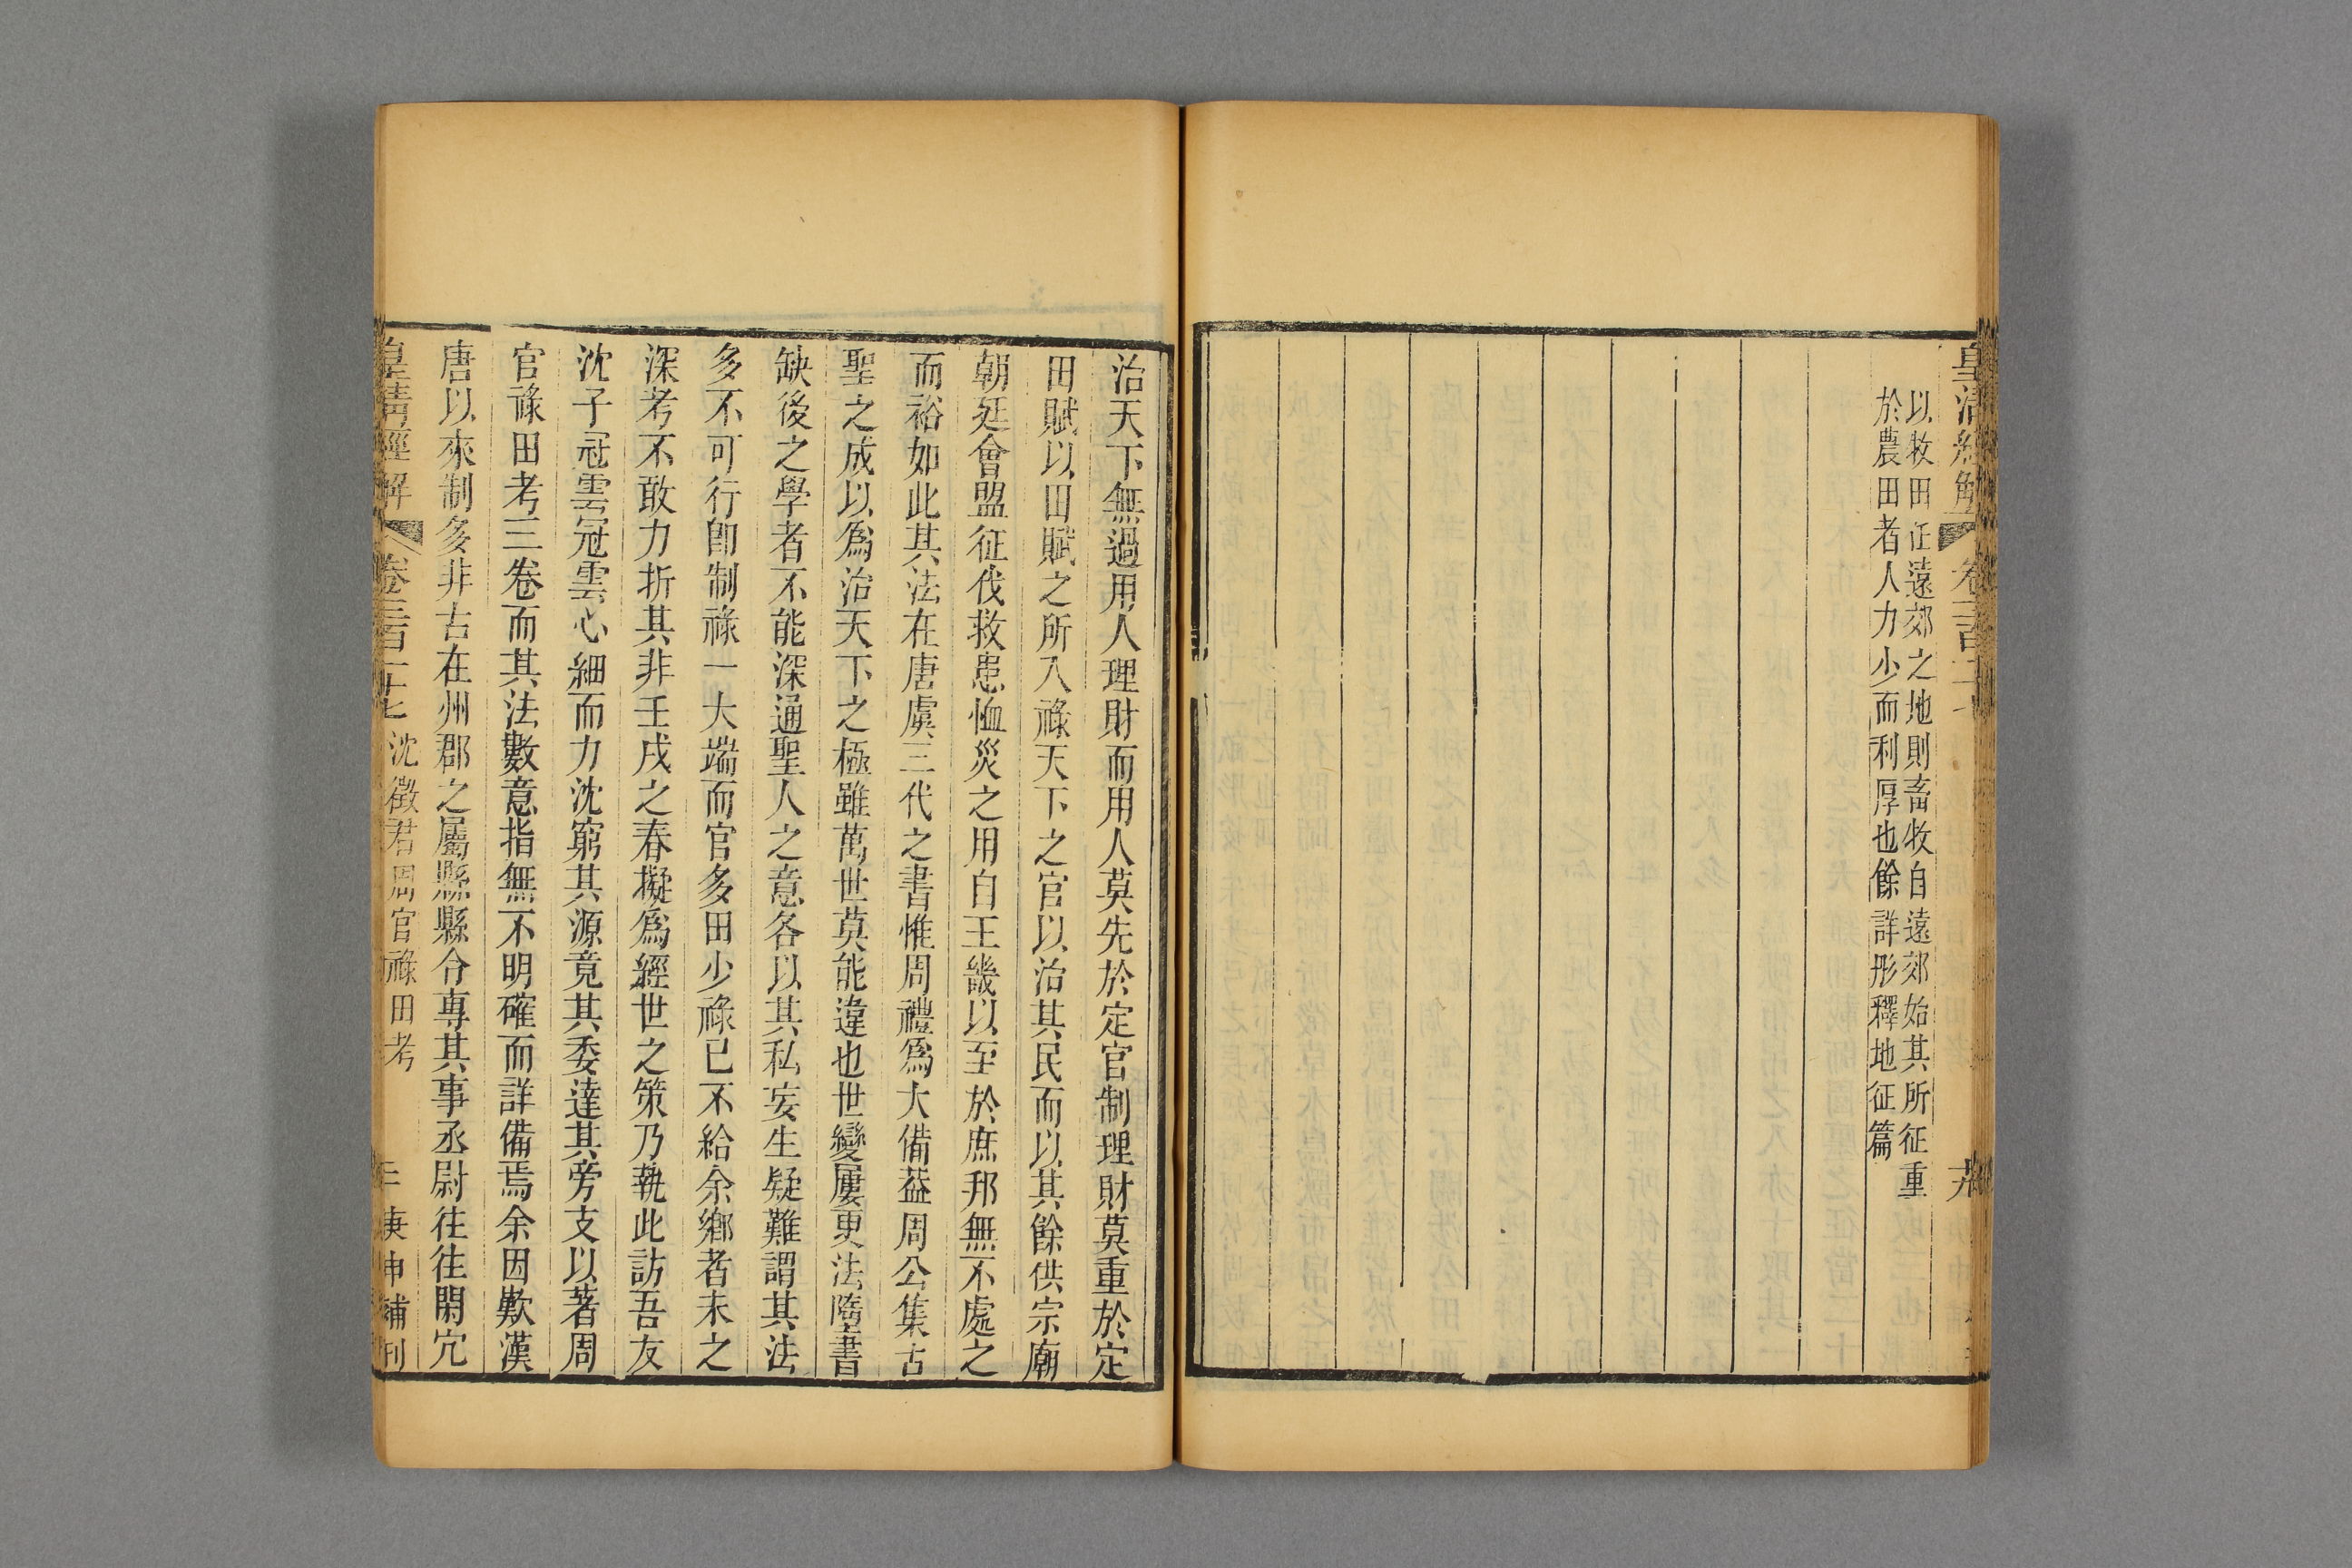 皇清經解 卷三百十七
以牧田征遠郊之地則畜牧自遠郊始其所征重
於農田者人力少而利厚也餘詳形釋地征篇
治天下無過用人理財而用人莫先於定官制理財莫重於定
田賦以田賦之所入祿天下之官以治其民而以其餘供宗廟
朝廷會盟征伐救患恤災之用自王畿以至於庶邦無不處之
而裕如此其法在唐虞三代之書惟周禮爲大備葢周公集古
聖之成以爲治天下之極雖萬世莫能違也世變屢更法隨書
缺後之學者不能深通聖人之意各以其私妄生疑難謂其法
多不可行卽制祿一大端而官多田少祿已不給余鄉者未之
深考不敢力折其非壬戌之春擬爲經世之策乃執此訪吾友
沈子冠雲冠雲心細而力沈窮其源竟其委達其旁支以著周
官祿田考三卷而其法數意指無不明確而詳備焉余因歎漢
唐以來制多非古在州郡之屬縣縣令專其事丞尉往往閑冗
皇清經解 卷三百十七 沈徵君周官祿田考 庚申補刊